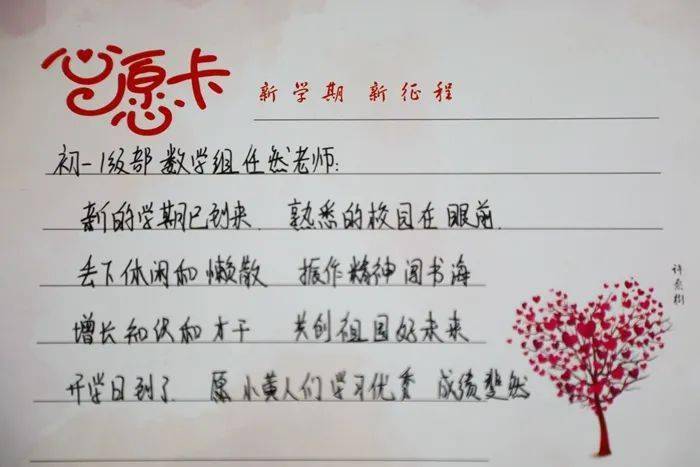 心愿卡
新学期 新征程
初一级部数学组任然老师:
新的学期已到来 熟悉的校园在眼前
丢下休闲和懒散 振作精神闯书海
增长知识和才干 共创祖国好未来
开学日到了 愿小黄人们学习优秀 成绩斐然
许愿树